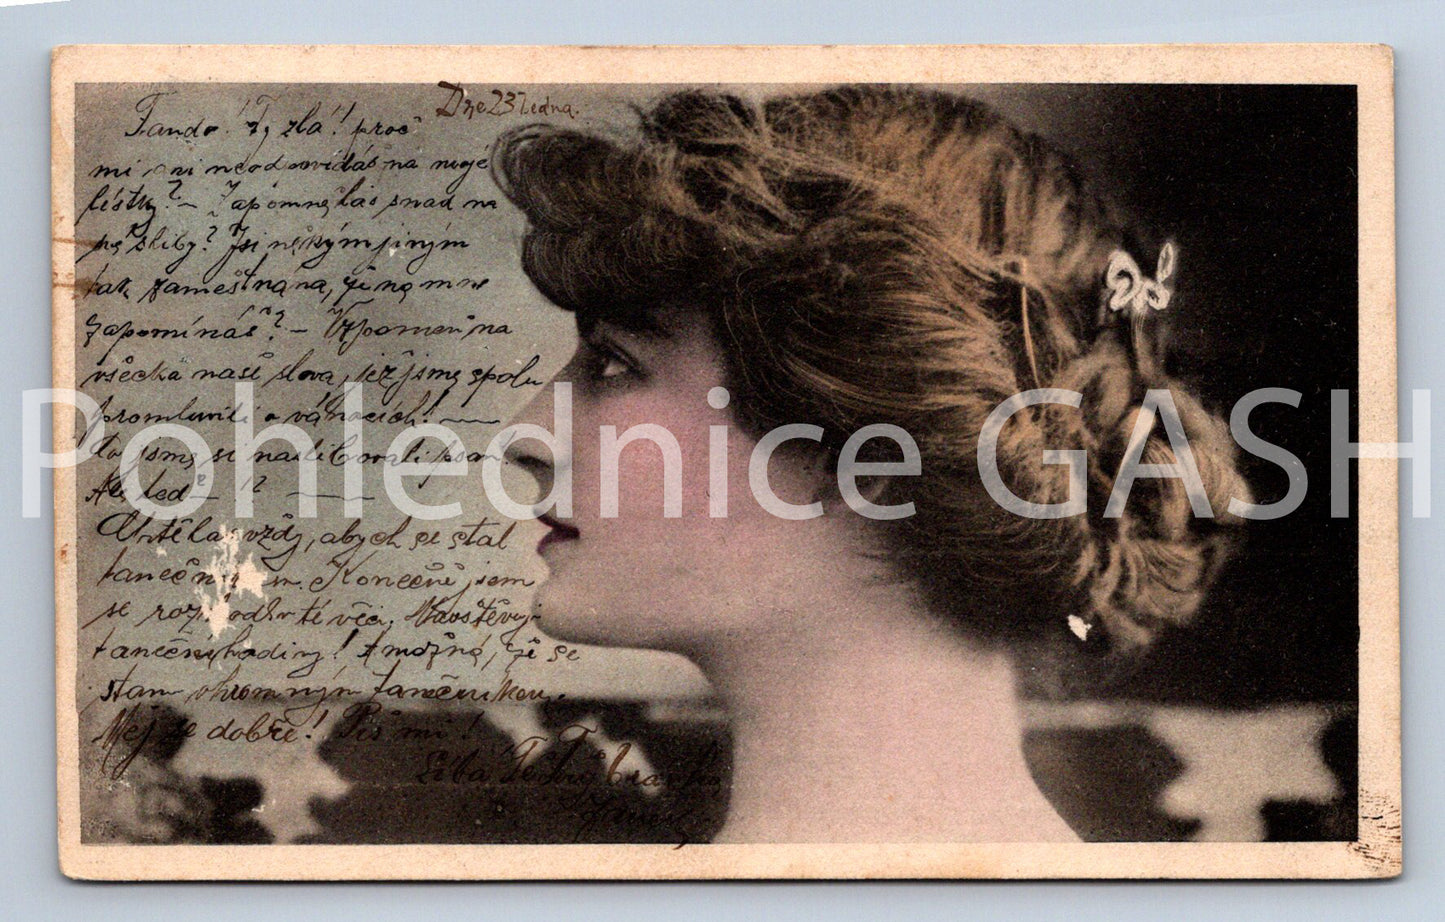 Dne 23 ledna.
Fando! Ty zlá! proč
mi ani neodpovídáš na moje
lístky? – Zapomnělas snad na
sliby? Jsi někým jiným
tak zaměstnána, že na mne
zapomínáš? – Vzpomeň na
všecka naše slova, jež jsme spolu
promluvili o vánocích! —
to jsme si naslibovali psaní.
A teď !? —
Chtěla vždy, abych se stal
Konečně jsem
se té věci. Navštěvuji
taneční hodiny! A možná, že se
stanu ohromným tanečníkem.
Měj se dobře! Piš mi!
Líbá Tě Tvůj
Pohlednice GASH